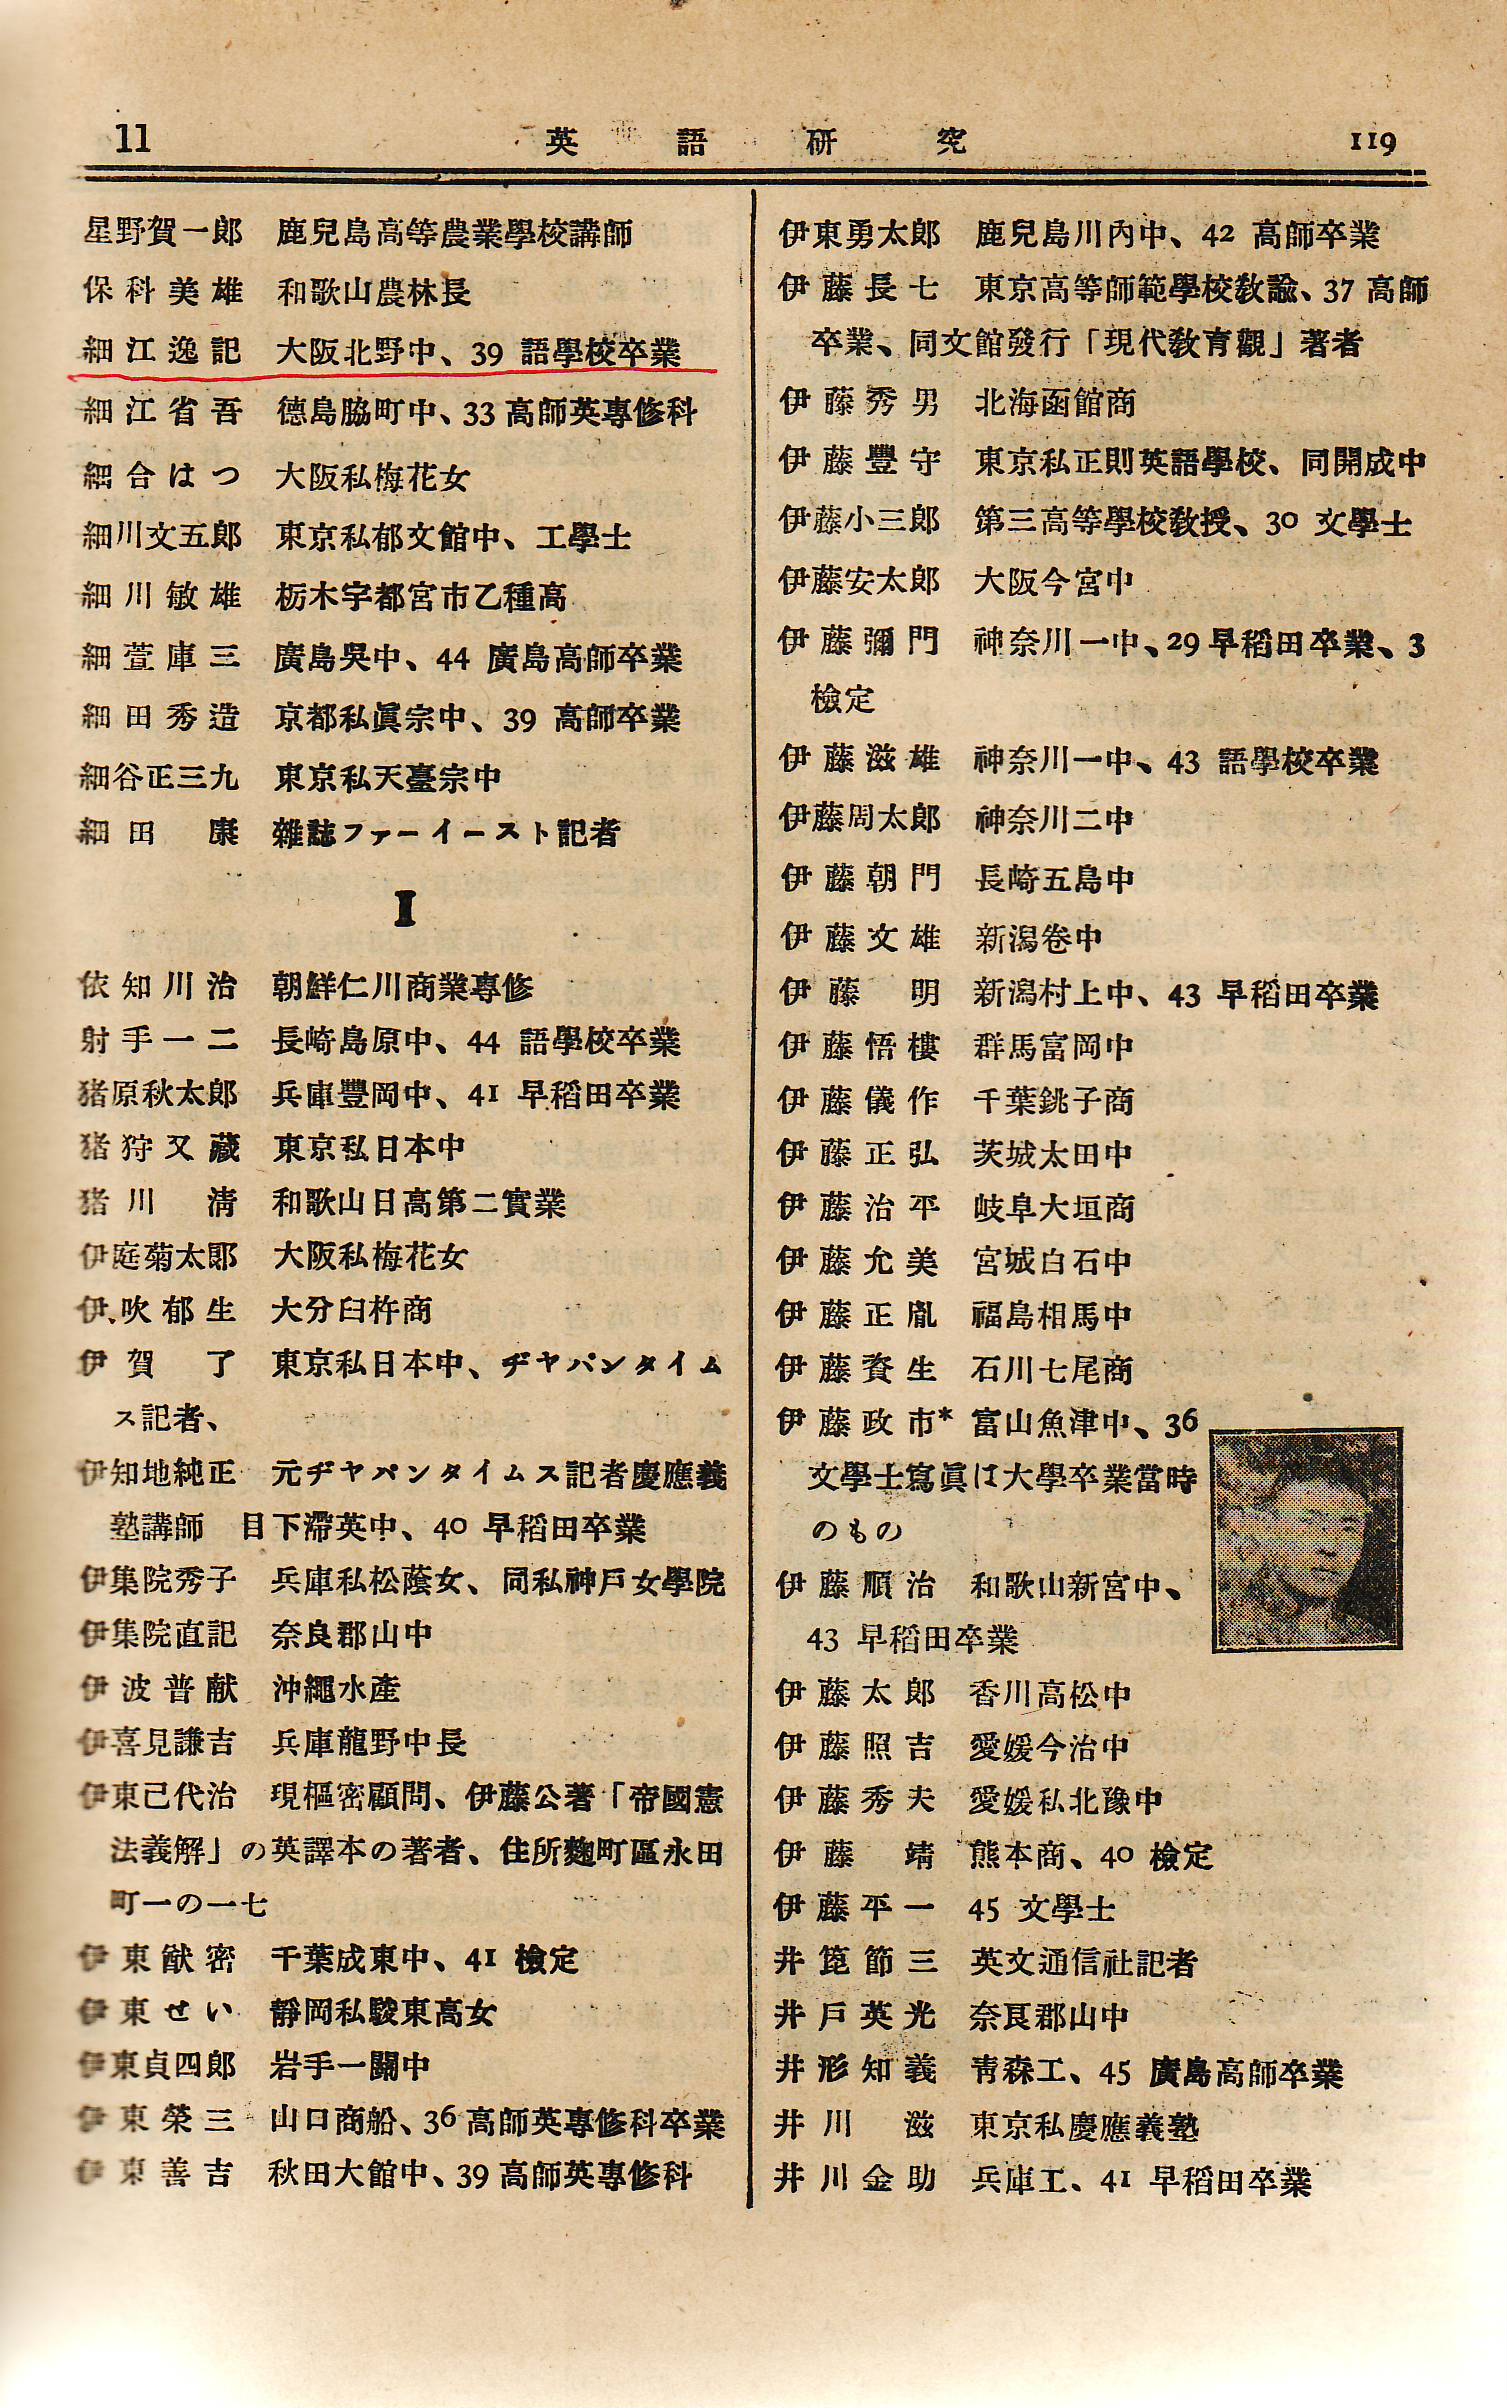 11 英語研究 119
星野賀一郎 鹿兒島高等農業學校講師
保科美雄 和歌山農林長
細江逸記 大阪北野中、39 語學校卒業
細江省吾 德島脇町中、33高師英專修科
細合はつ 大阪私梅花女
細川文五郎 東京私郁文館中、工學士
細川敏雄 栃木宇都宮市乙種高
細萱庫三 廣島吳中、44 廣島高師卒業
細田秀造 京都私眞宗中、39 高師卒業
細谷正三九 東京私天臺宗中
細田康 雜誌ファーイースト記者
I
依知川治 朝鮮仁川商業專修
射手一二 長崎島原中、44 語學校卒業
猪原秋太郎 兵庫豐岡中、41 早稻田卒業
猪狩又藏 東京私日本中
猪川淸 和歌山日高第二實業
伊庭菊太郎 大阪私梅花女
伊吹郁生 大分臼杵商
伊賀了 東京私日本中、ヂヤパンタイム
ス記者、
伊知地純正 元ヂヤパンタイムス記者慶應義
塾講師 目下滯英中、40 早稻田卒業
伊集院秀子 兵庫私松蔭女、同私神戶女學院
伊集院直記 奈良郡山中
伊波普獻 沖繩水產
伊喜見謙吉 兵庫龍野中長
伊東己代治 現樞密顧問、伊藤公著「帝國憲
法義解」の英譯本の著者、住所麴町區永田
町一の一七
伊東猷密 千葉成東中、41 檢定
伊東せい 靜岡私駿東高女
伊東貞四郎 岩手一關中
伊東榮三 山口商船、36高師英專修科卒業
伊東善吉 秋田大館中、39高師英專修科
伊東勇太郎 鹿兒島川內中、42 高師卒業
伊藤長七 東京高等師範學校敎諭、37高師
卒業、同文館發行「現代敎育觀」著者
伊藤秀男 北海函館商
伊藤豐守 東京私正則英語學校、同開成中
伊藤小三郎 第三高等學校敎授、30 文學士
伊藤安太郎 大阪今宮中
伊藤彌門 神奈川一中、29早稻田卒業、3
檢定
伊藤滋雄 神奈川一中、43 語學校卒業
伊藤周太郎 神奈川二中
伊藤朝門 長崎五島中
伊藤文雄 新潟卷中
伊藤明 新潟村上中、43 早稻田卒業
伊藤悟樓 群馬富岡中
伊藤儀作 千葉銚子商
伊藤正弘 茨城太田中
伊藤治平 岐阜大垣商
伊藤允美 宮城白石中
伊藤正胤 福島相馬中
伊藤資生 石川七尾商
伊藤政市* 富山魚津中、36
文學士寫眞は大學卒業當時
のもの
伊藤順治 和歌山新宮中、
43 早稻田卒業
伊藤太郎 香川高松中
伊藤照吉 愛媛今治中
伊藤秀夫 愛媛私北豫中
伊藤靖 熊本商、40 檢定
伊藤平一 45 文學士
井箆節三 英文通信社記者
井戶英光 奈良郡山中
井形知義 靑森工、45 廣島高師卒業
井川滋 東京私慶應義塾
井川金助 兵庫工、41 早稻田卒業